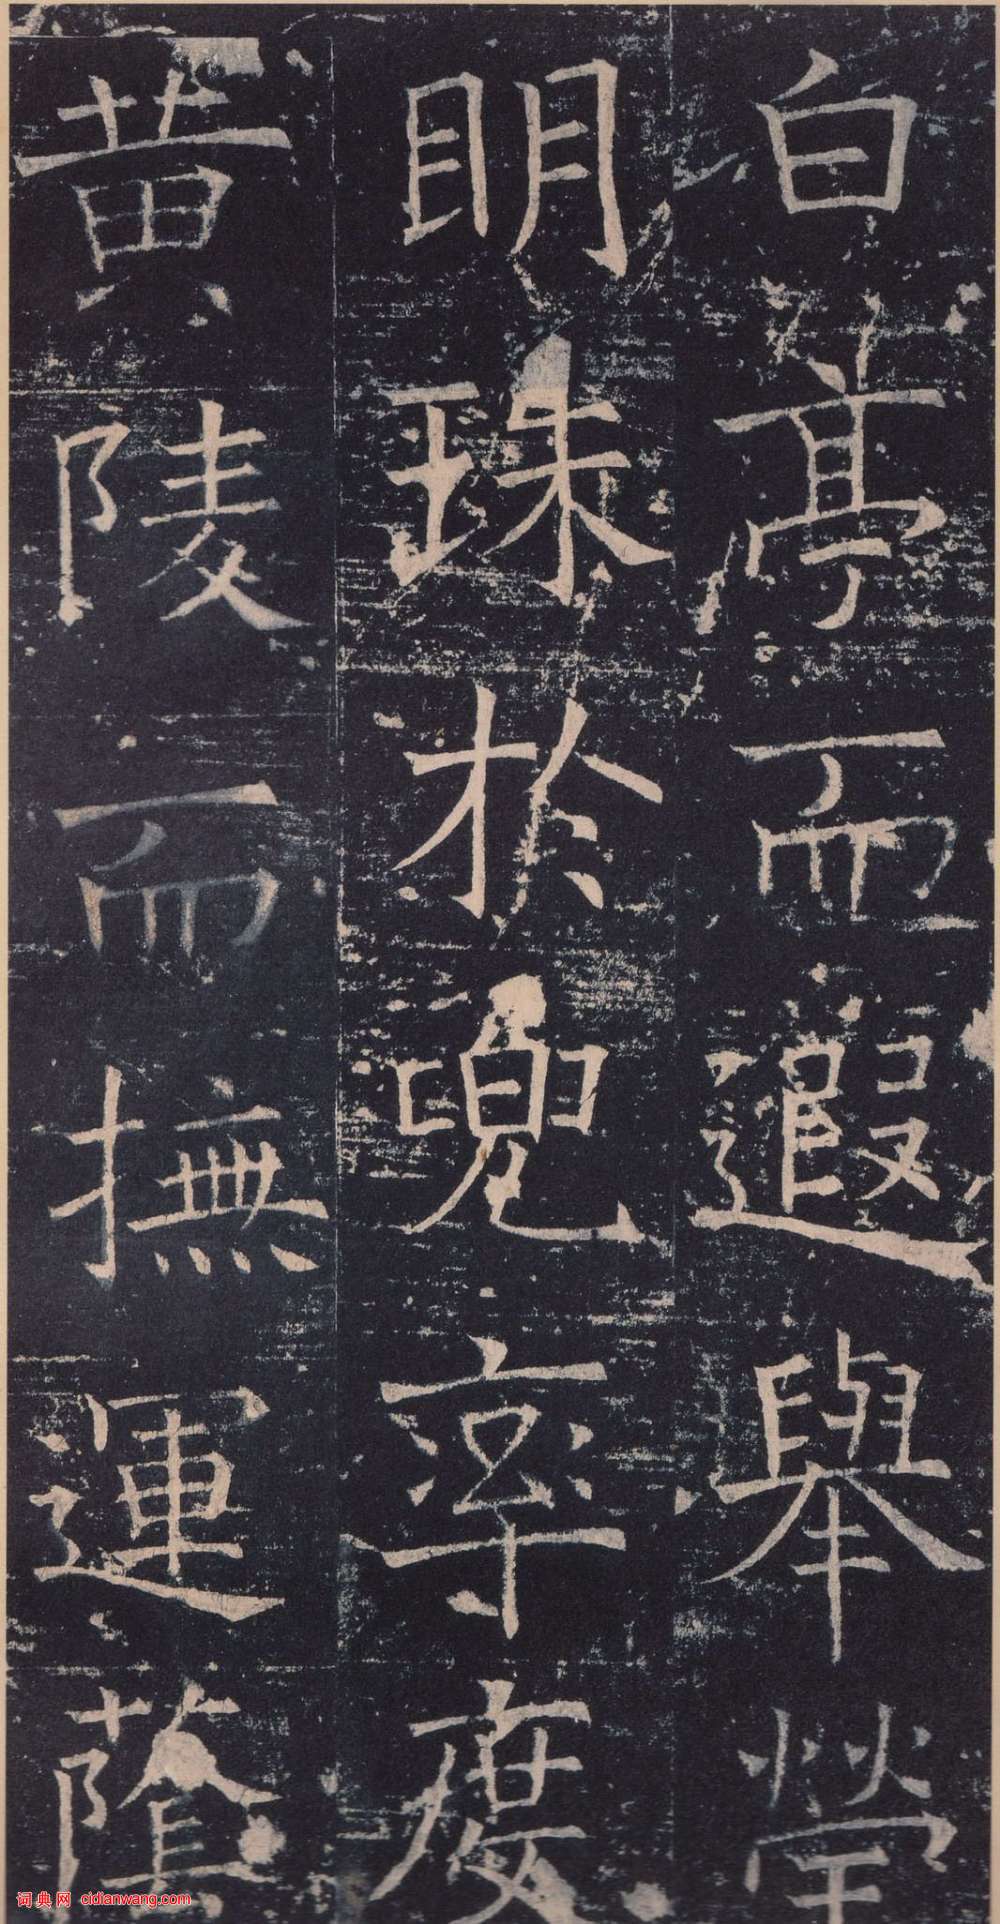 白亭而遐舉瑩
明珠於兜率度
黄陵而撫運蔭
词典网 cidianwang.com